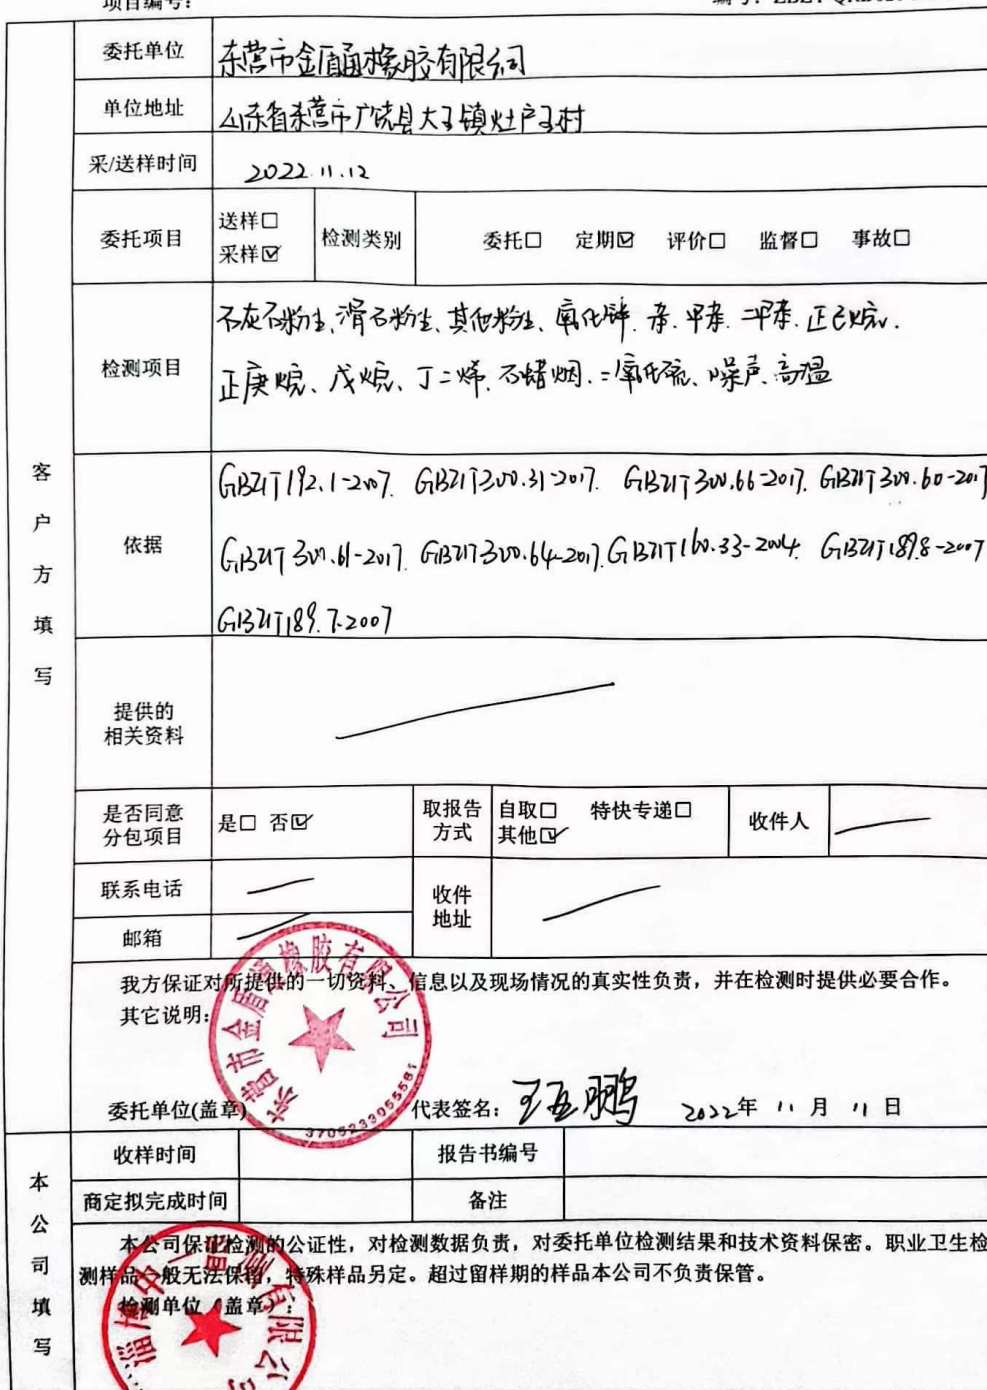 项目编号：
委托单位 东营市金盾通橡胶有限公司
单位地址 山东省东营市广饶县大王镇灶户王村
采/送样时间 2022.11.12
委托项目 送样□ 采样☑ 检测类别 委托□ 定期☑ 评价□ 监督□ 事故□
检测项目 石灰石粉尘、滑石粉尘、其他粉尘、氧化锌、苯、甲苯、二甲苯、正己烷、
正庚烷、戊烷、丁二烯、石蜡烟、二氧化硫、噪声、高温
客户方填写
依据 GBZ/T192.1-2007、GBZ/T300.31-2017、GBZ/T300.66-2017、GBZ/T300.60-2017
GBZ/T300.61-2017、GBZ/T300.64-2017、GBZ/T160.33-2004、GBZ/T189.8-2007
GBZ/T189.7-2007
提供的
相关资料
是否同意
分包项目 是□ 否☑ 取报告
方式 自取□ 特快专递□
其他☑ 收件人
联系电话 收件
地址
邮箱
我方保证对所提供的一切资料、信息以及现场情况的真实性负责，并在检测时提供必要合作。
其它说明：
委托单位(盖章) 代表签名： 2022年 11 月 11 日
3705233055581
本公司填写
收样时间 报告书编号
商定拟完成时间 备注
本公司保证检测的公证性，对检测数据负责，对委托单位检测结果和技术资料保密。职业卫生检
测样品一般无法保留，特殊样品另定。超过留样期的样品本公司不负责保管。
检测单位（盖章）：